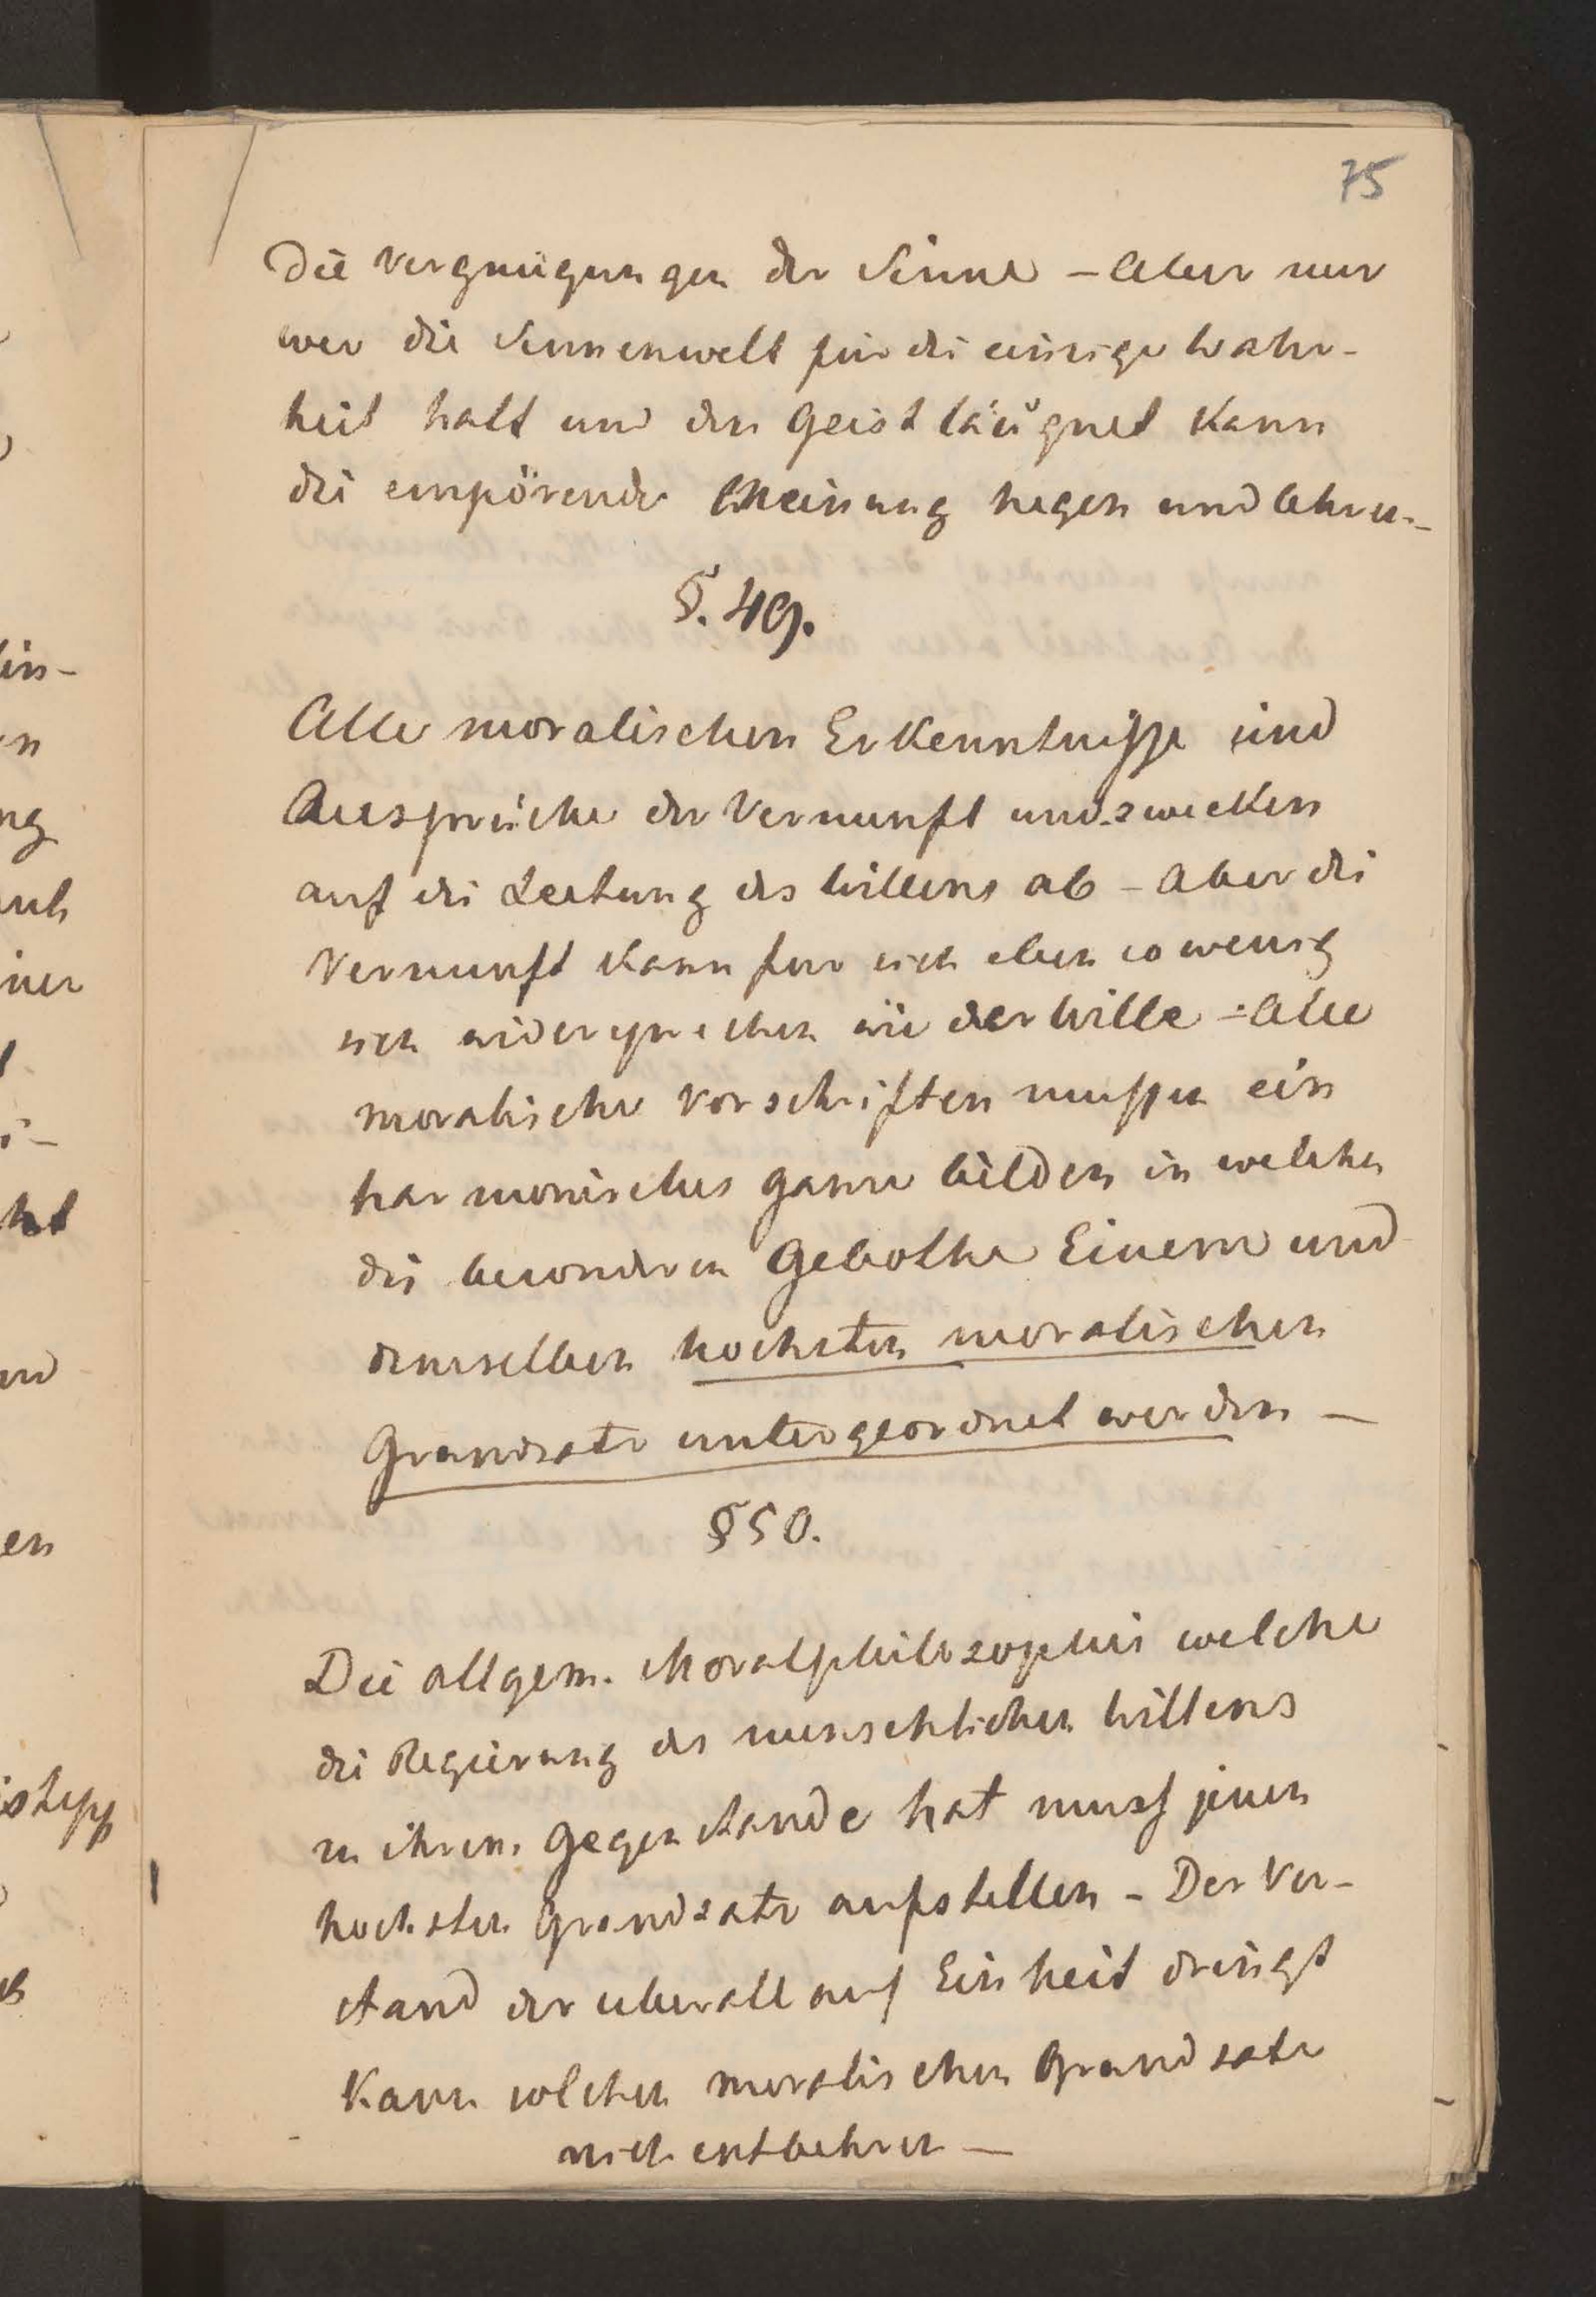 75
die Vergnügungen der Sinne – Aber nur
wer die Sinnenwelt für die einzige Wahr-
heit halt und den Geist läügnet kann
die empörende Meinung hegen und lehren –
§. 49.
Alle moralischen Erkenntnisse sind
Aussprüche der Vernunft und zwecken
auf die Leitung des Willens ab – Aber die
Vernunft kann fur sich eben so wenig
sich widersprechen wie der Wille – Alle
moralische Vorschriften mussen ein
harmonisches ganze bilden in welchen
die besonderen Gebothe Einem und
demselben hochsten moralischen
Grundsatz untergeordnet werden –
§ 50.
Die allgem. Moralphilosophie welche
die Regierung des menschlichen Willens
zu ihrem Gegenstande hat muss jenen
hochsten Grundsatz aufstellen – Der Ver-
stand der uberall auf Einheit dringt
kann solchen moralischen Grundsatz
nich entbehren –
in-
n
ng
iner
ht
en
istipp